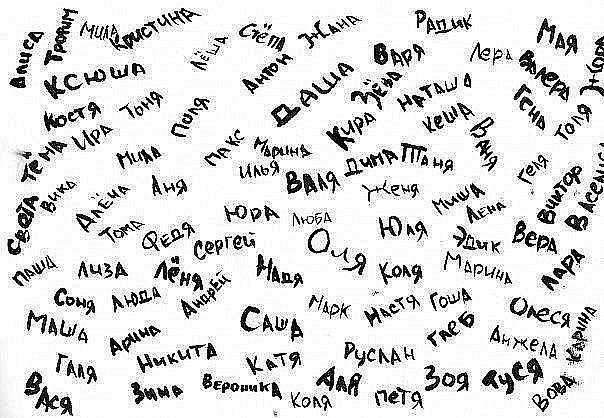 Алиса
Трофим
Мила
Кристина
Лёша
Стёпа
Жанна
Радик
Варя
Лера
Мая
Жора
Ксюша
Антон
Даша
Зёва
Наташа
Валера
Костя
Тоня
Поля
Кира
Кеша
Ваня
Гена
Толя
Тёма
Ира
Мила
Макс
Марина
Илья
Дима
Таня
Геля
Света
Вика
Алёна
Аня
Валя
Женя
Миша
Лена
Виктор
Василиса
Тома
Федя
Юра
Люба
Юля
Эдик
Вера
Сергей
Оля
Паша
Лиза
Лёня
Надя
Коля
Марина
Лара
Соня
Люда
Андрей
Марк
Настя
Гоша
Олеся
Маша
Арина
Саша
Глеб
Анжела
Карина
Галя
Никита
Катя
Руслан
Вася
Зина
Вероника
Коля
Аля
Петя
Зоя
Дуся
Вова